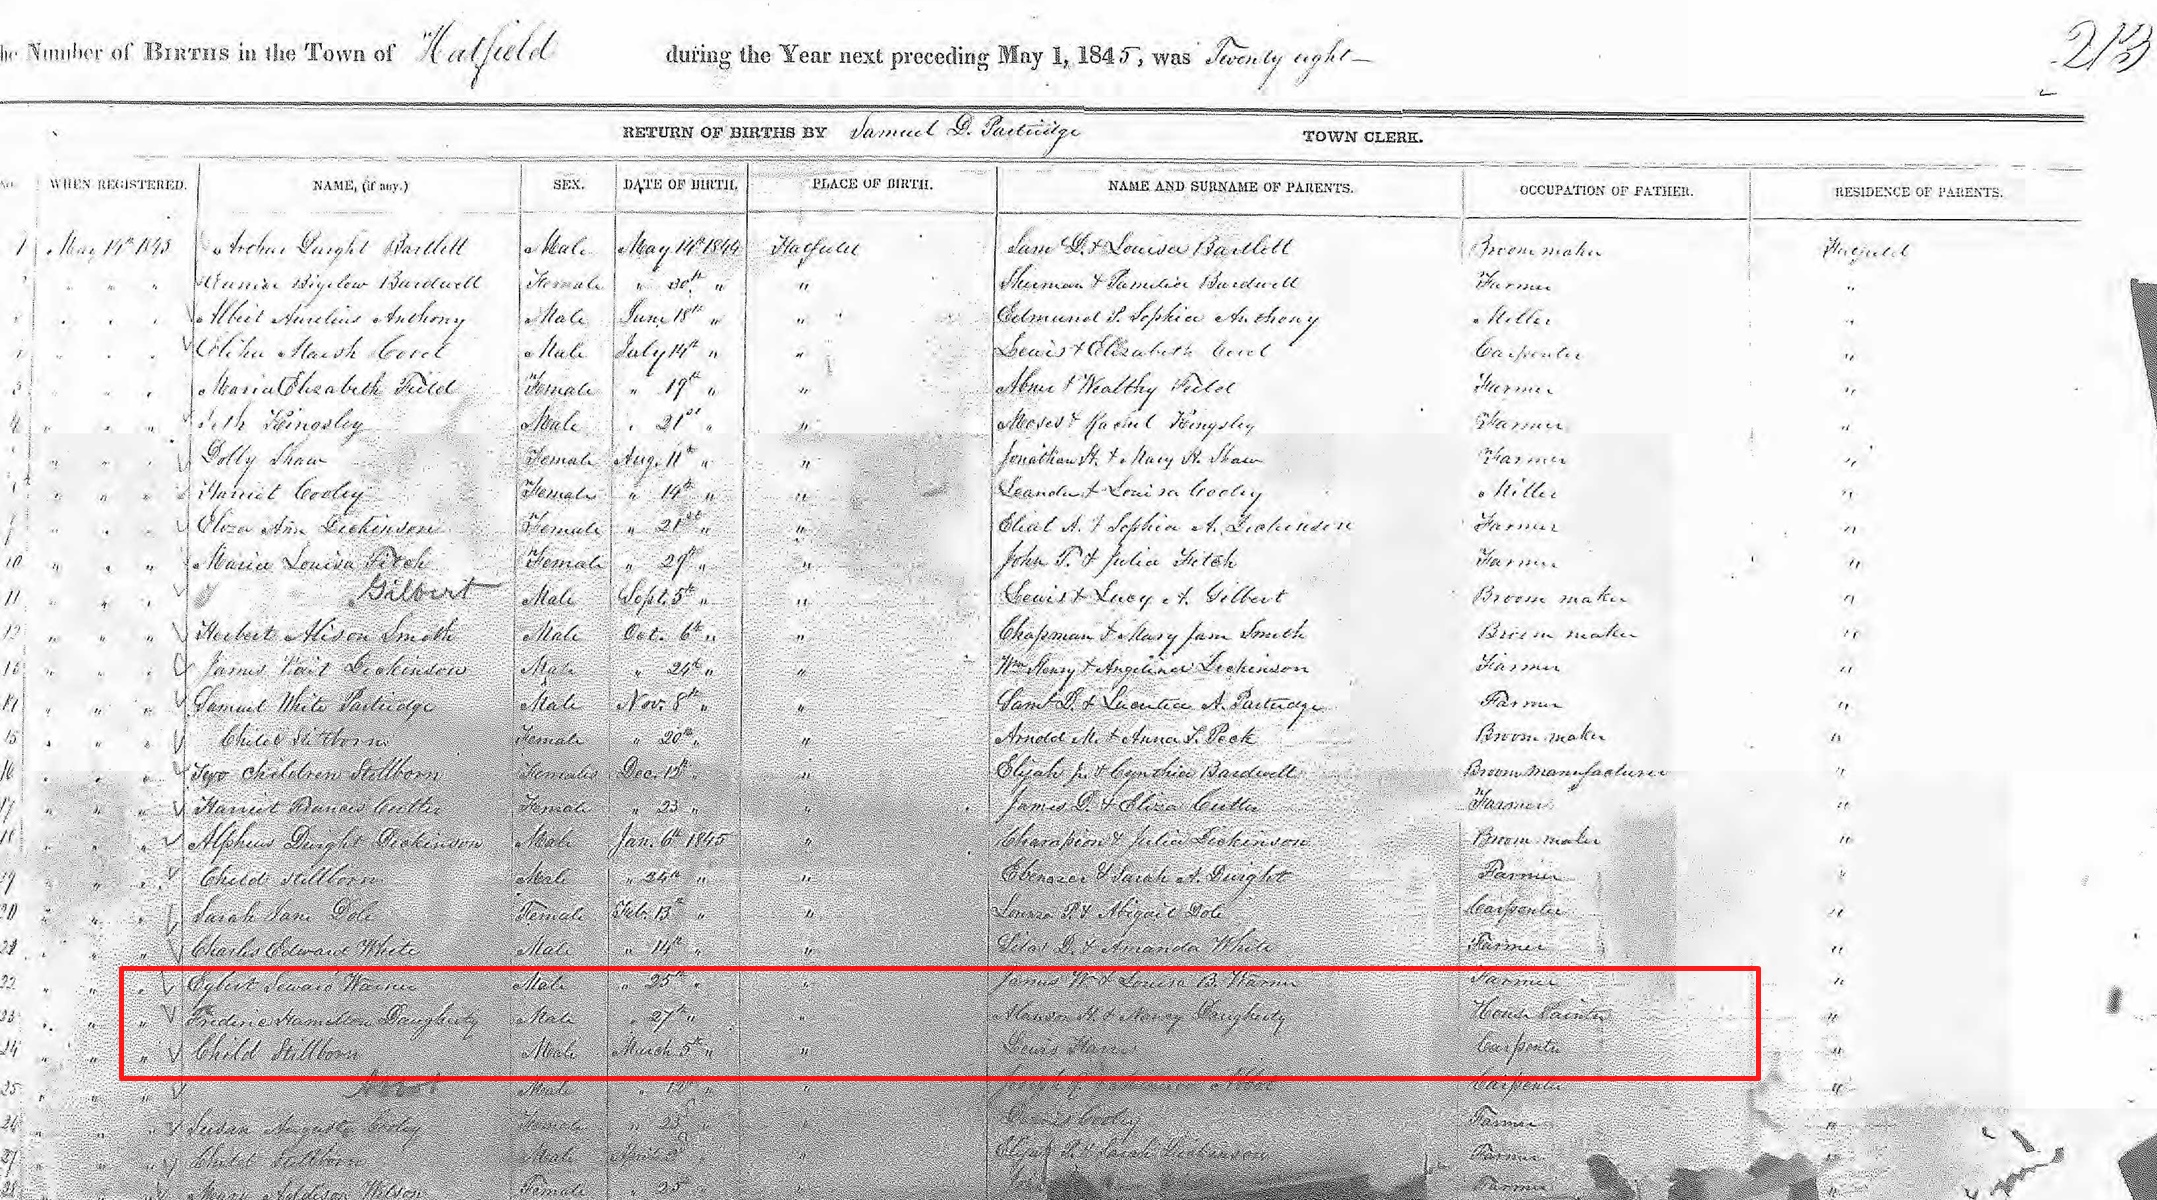 he Number of BIRTHS in the Town of Hatfield during the Year next preceding May 1, 1845, was Twenty eight 213
RETURN OF BIRTHS BY Samuel D. Partridge TOWN CLERK.
No. WHEN REGISTERED. NAME, (if any.) SEX. DATE OF BIRTH. PLACE OF BIRTH. NAME AND SURNAME OF PARENTS. OCCUPATION OF FATHER. RESIDENCE OF PARENTS.
1 May 14th 1845 Arthur Dwight Bartlett Male May 14th 1844 Hatfield Saml D. & Louisa Bartlett Broom maker Hatfield
" " " Bigelow Bardwell Female " 30th " " Sherman & Pamelia Bardwell Farmer "
" " " Albert Aurelius Anthony Male June 18th " " Edmund P. Sophia Anthony Miller "
" " " Elihu Marsh Covel Male July 14th " " Lewis & Elizabeth Covel Carpenter "
5 " " " Maria Elizabeth Feild Female " 19th " " Abner & Wealthy Feild Farmer "
" " " Seth Kingsley Male " 21st " " Moses & Rachel Kingsley Farmer "
" " " Dolly Shaw Female Aug. 11th " " Jonathan H. & Mary A. Shaw Farmer "
" " " Harriet Cooley Female " 14th " " Leander & Louisa Cooley Miller "
9 " " " Eliza Ann Dickinson Female " 21st " " A. & Sophia A. Dickinson Farmer "
10 " " " Maria Louisa Fitch Female " 29th " " John T. & Julia Fitch Farmer "
11 " " " Gilbert Male Sept. 5th " " Lewis & Lucy A. Gilbert Broom maker "
12 " " " Herbert Alison Smith Male Oct. 6th " " Chapman & Mary Jane Smith Broom maker "
" " " James Dickinson Male " 24th " " Wm Henry & Angelina Dickinson Farmer "
14 " " " Samuel White Partridge Male Nov. 8th " " Saml D. & A. Partridge Farmer "
15 " " " Child Stillborn Female " 20th " " Arnold M. & Anna S. Peck Broom maker "
16 " " " Two Children Stillborn Females Dec. 15th " " Elijah Jr. & Cynthia Bardwell Broom manufacturer "
17 " " " Harriet Frances Cutter Female " 23 " " James D. & Eliza Cutter Farmer "
18 " " " Alpheus Dwight Dickinson Male Jan. 6th 1845 " Champion & Julia Dickinson Broom maker "
19 " " " Child Stillborn Male " 24th " " Ebenezer & Sarah A. Dwight Farmer "
20 " " " Sarah Jane Dole Female Feb. 13th " " P. & Abigail Dole Carpenter "
21 " " " Charles Edward White Male " 14th " " Silas D. & Amanda White Farmer "
22 " " " Egbert Seward Warner Male " 25th " " James W. & Louisa B. Warner Farmer "
23 " " " Frederic Hamilton Daugherty Male " 27th " " Alanson H. & Nancy Daugherty House Painter "
24 " " " Child Stillborn Male March 5th " " Lewis Carpenter "
25 " " " Abbot Male " 12th " " Joseph Abbot Carpenter "
26 " " " Susan Augusta Cooley Female " 23 " " Dennis Cooley Farmer "
27 " " " Child Stillborn Male April 2d " " Elijah & Sarah Dickinson Farmer "
28 " " " Mary Addison Wilson Female " 25th " " Farmer "